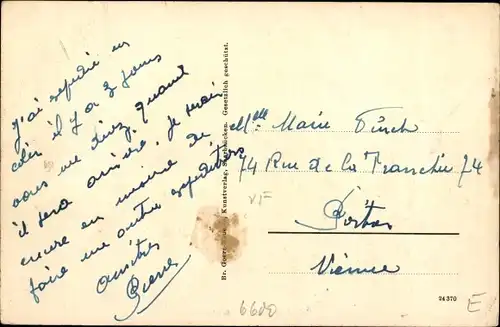 J'ai expédié un
colis il y a 3 jours
vous me direz quand
il sera arrivé. Je serai
encore en mesure de
faire une autre expédition
Amitiés
Pierre
Kunstverlag, Saarbrücken. Gesetzlich geschützt.
Melle Marie
74 Rue de la Tranchée 74
VF
Poitiers
Vienne
24370
6600
E